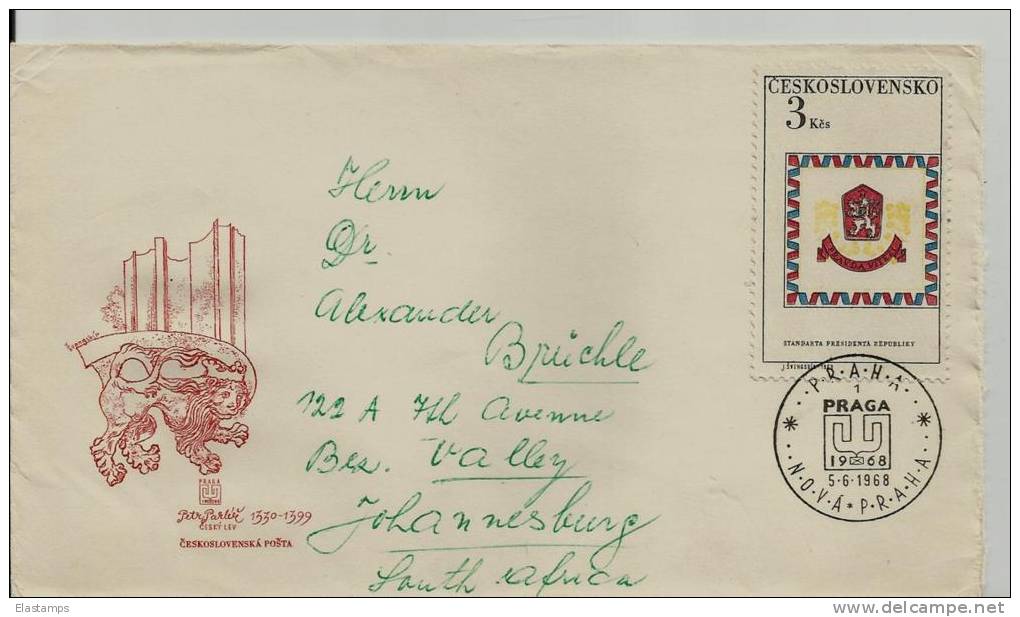 ČESKOSLOVENSKO
3 Kčs
PRAVDA VÍTĚZÍ
STANDARTA PRESIDENTA REPUBLIKY
J. ŠVENGSBÍR 1968
P·R·A·H·A
1
PRAGA
1968
5·6·1968
N·O·V·Á * P·R·A·H·A
Herrn
Dr.
Alexander
Brüchle
122 A 7th Avenue
Bez. Valley
Johannesburg
South Africa
PRAGA
Petr Parléř 1330-1399
ČESKÝ LEV
ČESKOSLOVENSKÁ POŠTA
Elastamps
delcampe.net